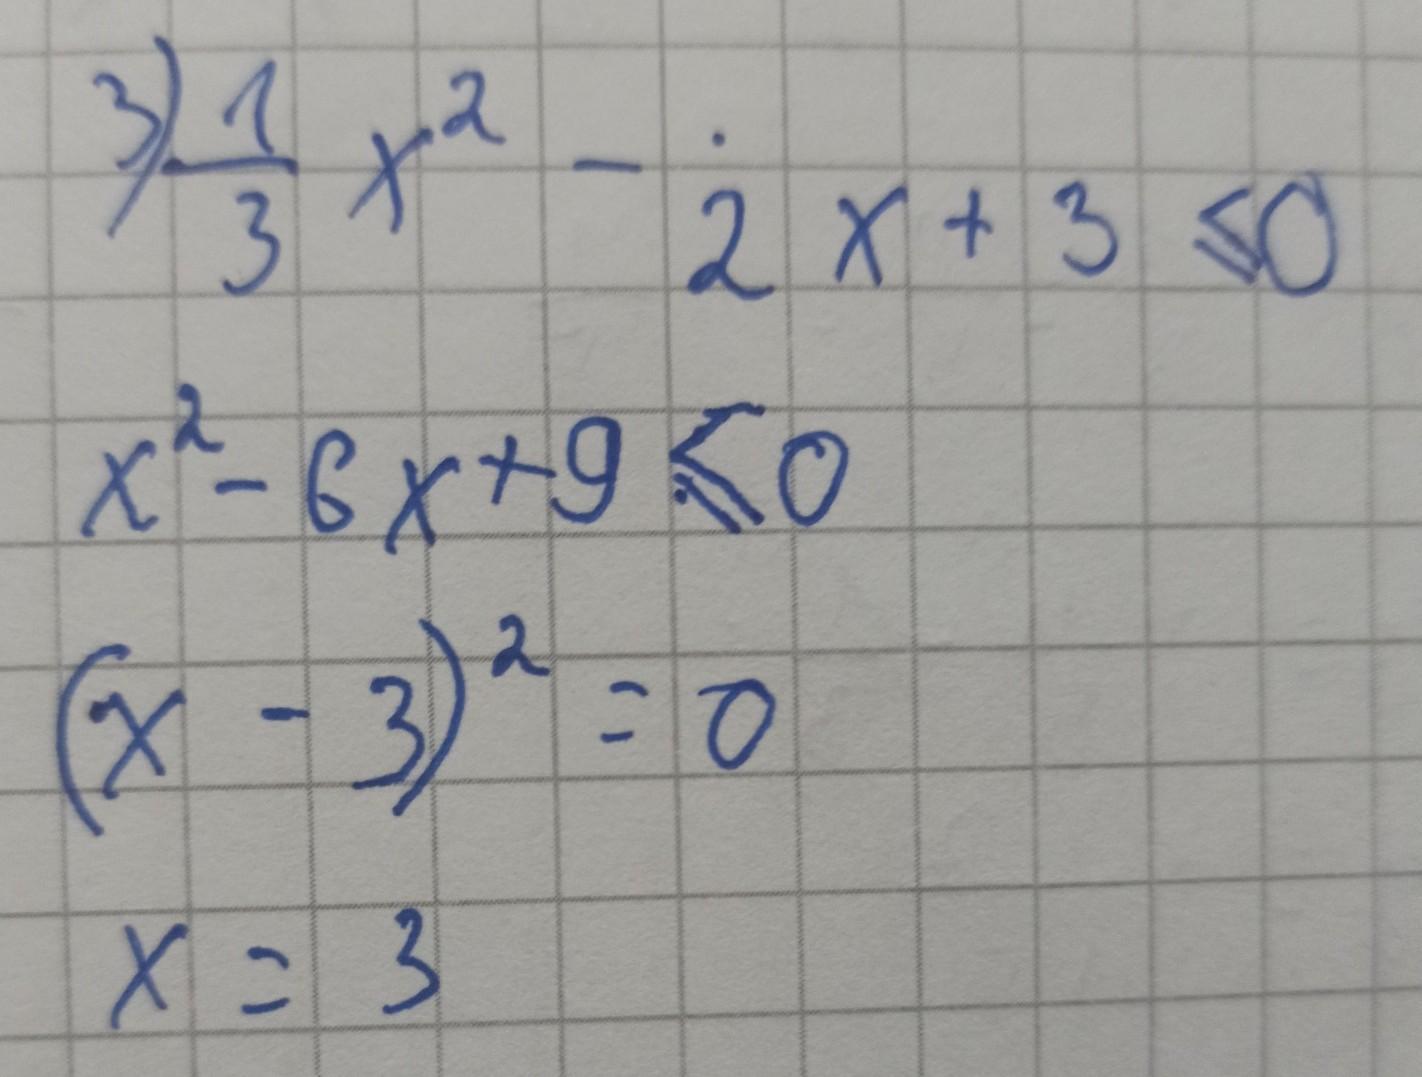 3) 1/3 x² - 2x + 3 ⩽ 0
x² - 6x + 9 ⩽ 0
(x - 3)² = 0
x = 3